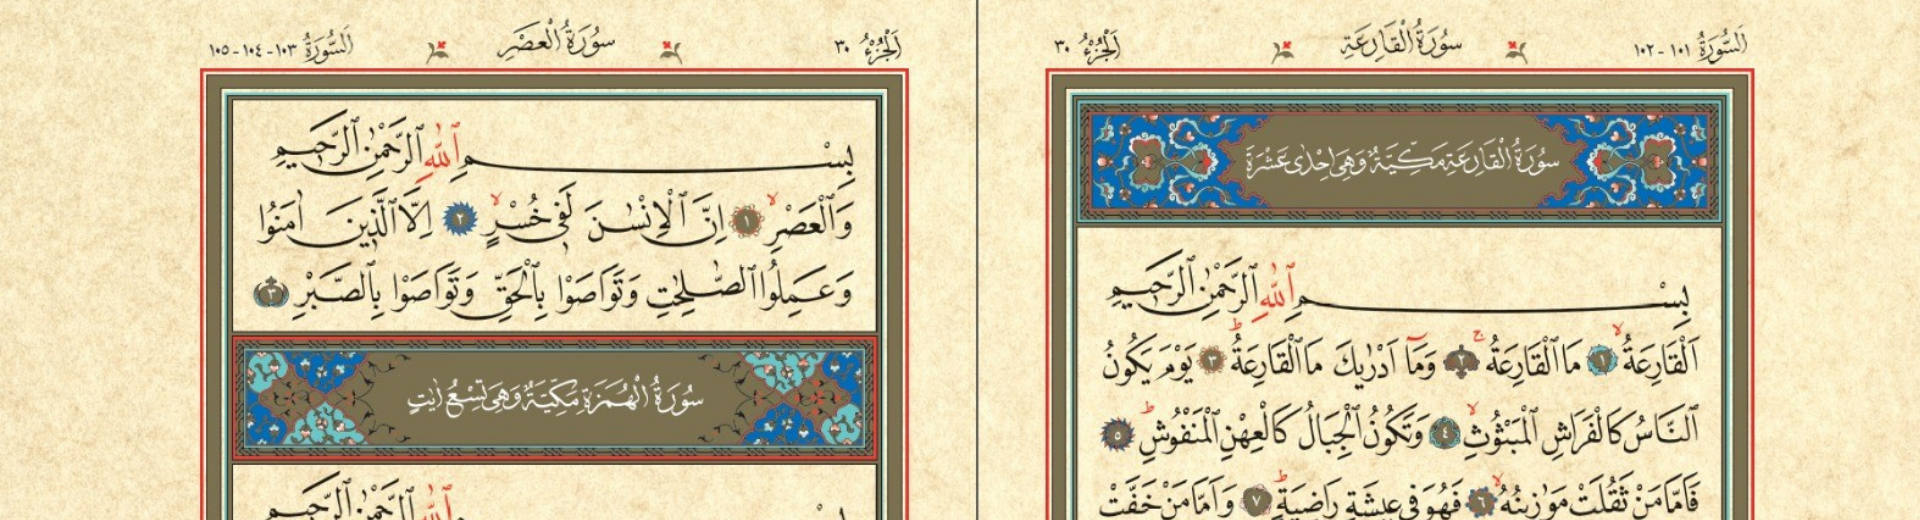 اَلسُّورَةُ ١٠١ - ١٠٢
سُورَةُ الْقَارِعَةِ
اَلْجُزْءُ ٣٠
سُورَةُ الْقَارِعَةِ مَكِّيَّةٌ وَهِيَ اِحْدٰى عَشْرَةَ
بِسْمِ ٱللّٰهِ ٱلرَّحْمٰنِ ٱلرَّحِيمِ
اَلْقَارِعَةُ ١ مَا الْقَارِعَةُ ٢ وَمَٓا اَدْرٰيكَ مَا الْقَارِعَةُ ٣ يَوْمَ يَكُونُ
النَّاسُ كَالْفَرَاشِ الْمَبْثُوثِ ٤ وَتَكُونُ الْجِبَالُ كَالْعِهْنِ الْمَنْفُوشِ ٥
فَاَمَّا مَنْ ثَقُلَتْ مَوَازِينُهُ ٦ فَهُوَ فِي عِيشَةٍ رَاضِيَةٍ ٧ وَاَمَّا مَنْ خَفَّتْ
اَلْجُزْءُ ٣٠
سُورَةُ الْعَصْرِ
اَلسُّورَةُ ١٠٣ - ١٠٤ - ١٠٥
بِسْمِ ٱللّٰهِ ٱلرَّحْمٰنِ ٱلرَّحِيمِ
وَالْعَصْرِ ١ اِنَّ الْاِنْسَانَ لَفِي خُسْرٍ ٢ اِلَّا الَّذِينَ اٰمَنُوا
وَعَمِلُوا الصَّالِحَاتِ وَتَوَاصَوْا بِالْحَقِّ وَتَوَاصَوْا بِالصَّبْرِ ٣
سُورَةُ الْهُمَزَةِ مَكِّيَّةٌ وَهِيَ تِسْعُ اٰيَاتٍ
بِسْمِ ٱللّٰهِ ٱلرَّحْمٰنِ ٱلرَّحِيمِ